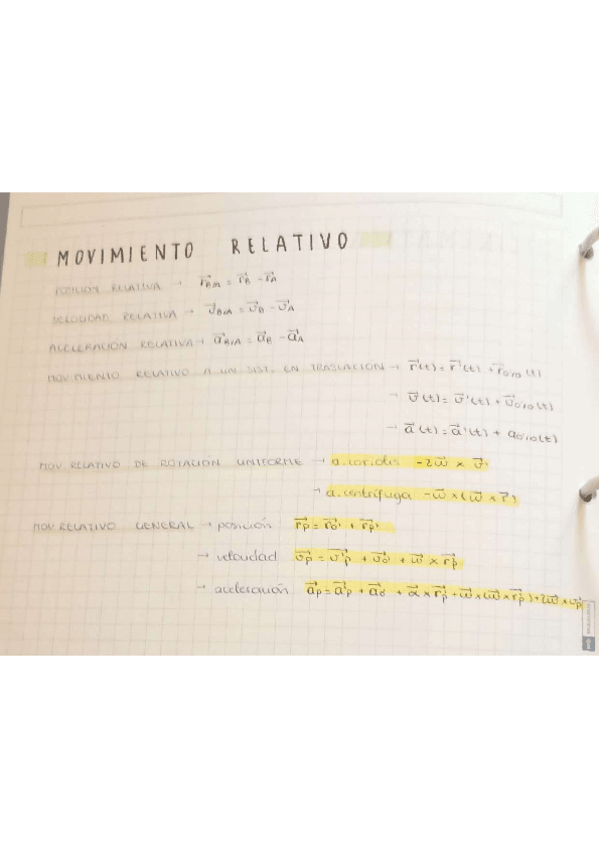 MOVIMIENTO RELATIVO
POSICIÓN RELATIVA → r⃗B/A = r⃗B - r⃗A
VELOCIDAD RELATIVA → v⃗B/A = v⃗B - v⃗A
ACELERACIÓN RELATIVA → a⃗B/A = a⃗B - a⃗A
MOVIMIENTO RELATIVO A UN SIST. EN TRASLACIÓN → r⃗(t) = r⃗'(t) + r⃗O'/O(t)
→ v⃗(t) = v⃗'(t) + v⃗O'/O(t)
→ a⃗(t) = a⃗'(t) + aO'/O(t)
MOV. RELATIVO DE ROTACIÓN UNIFORME → a. coriolis -2ω⃗ × v⃗'
→ a. centrífuga -ω⃗ × (ω⃗ × r⃗)
MOV RELATIVO GENERAL → posición r⃗P = r⃗O' + r⃗P'
→ velocidad v⃗P = v⃗'P + v⃗O' + ω⃗ × r⃗P'
→ aceleración a⃗P = a⃗'P + a⃗O' + α⃗ × r⃗P' + ω⃗ × (ω⃗ × r⃗P') + 2ω⃗ × v⃗P'